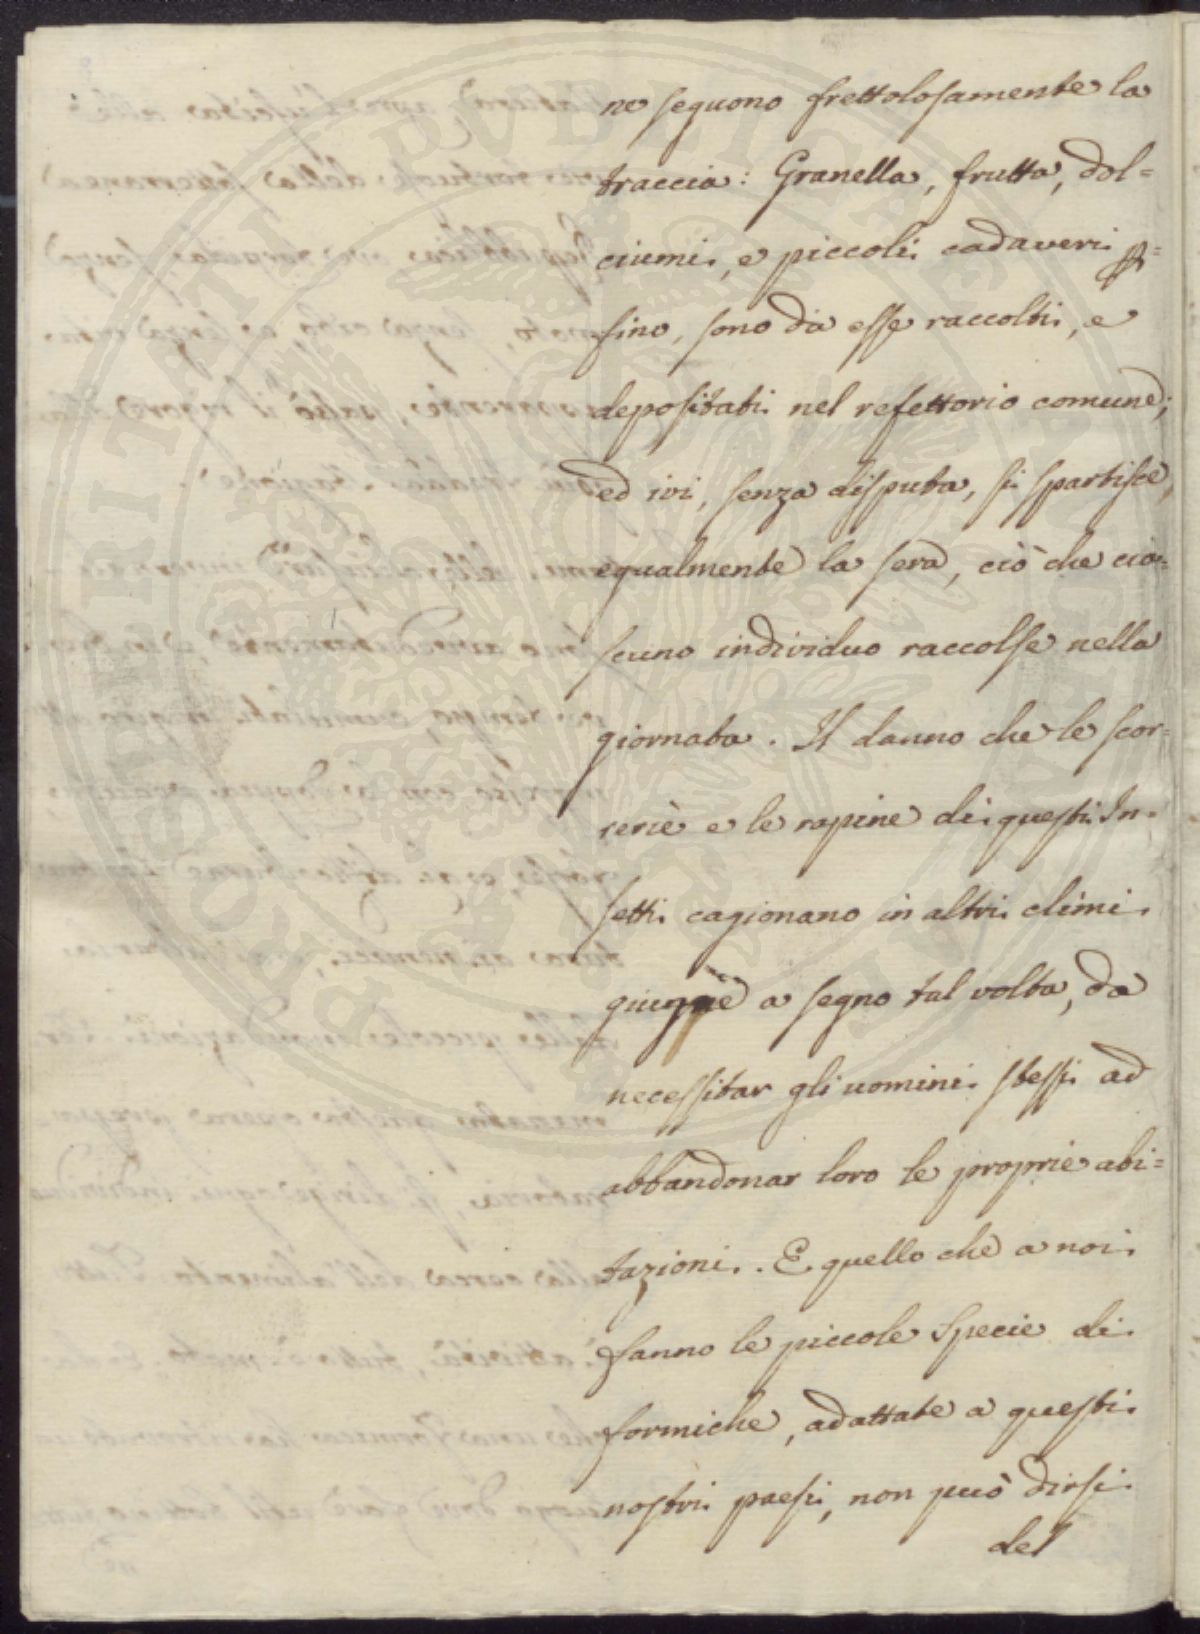 ne seguono frettolosamente la
traccia: Granella, frutta, dol=
ciumi, e piccoli cadaveri
fino, sono da esse raccolti, e
depositati nel refettorio comune;
ed ivi, senza disputa, si spartisce,
egualmente la sera, ciò che cia=
scuno individuo raccolse nella
giornata. Il danno che le scor=
rerie e le rapine di questi In=
setti cagionano in altri climi
giugne a segno tal volta, da
necessitar gli uomini stessi ad
abbandonar loro le proprie abi=
tazioni. E quello che a noi
fanno le piccole specie di
formiche, adattate a questi
nostri paesi, non può dirsi
del
PROSPERITATI PVBLICAE AVGENDAE